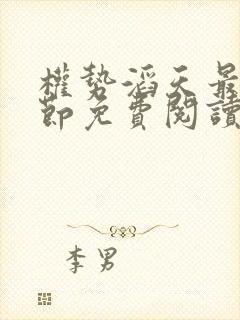 權勢滔天最
節免費閱讀
李男